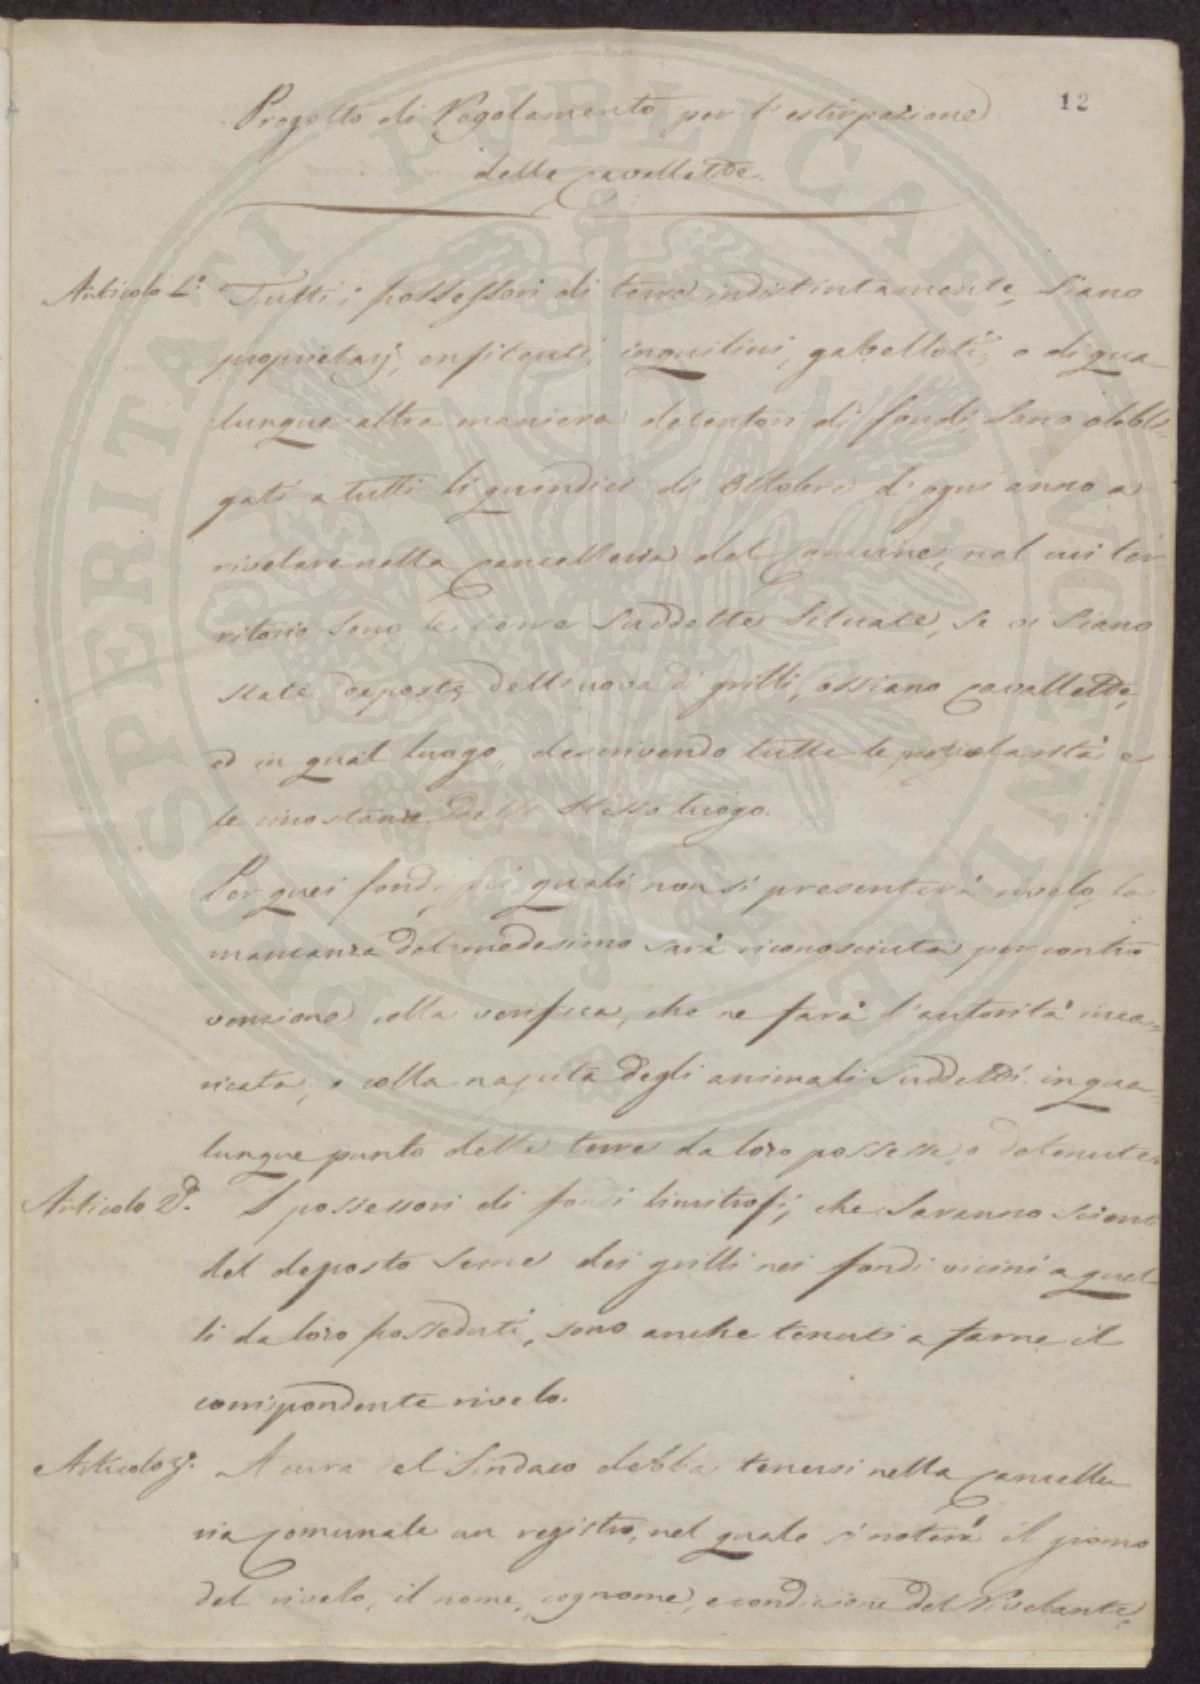 12
Progetto di Regolamento per l'estirpazione
delle Cavallette.
Articolo 1.° Tutti i possessori di terre indistintamente, siano
proprietarj, enfiteuti, inquilini, gabelloti, o di qua-
lunque altra maniera detentori di fondi, sono obbli-
gati a tutti li quindici di Ottobre d'ogni anno a
rivelare nella Cancelleria del Comune, nel cui ter-
ritorio sono le terre suddette situate, se vi siano
state deposte dell'uova di grilli, ossiano Cavallette,
ed in qual luogo, descrivendo tutte le particolarità e
le circostanze dello stesso luogo.
Per quei fondi, pei quali non si presenterà rivelo, la
mancanza del medesimo sarà riconosciuta per contra
venzione colla verifica, che ne farà l'autorità inca-
ricata, o colla nascita degli animali suddetti in qua-
lunque punto delle terre da loro possesse, o detenute.
Articolo 2.° I possessori di fondi limitrofi, che saranno scienti
del deposto seme dei grilli nei fondi vicini a quel-
li da loro posseduti, sono anche tenuti a farne il
corrispondente rivelo.
Articolo 3.° A cura del Sindaco debba tenersi nella Cancelle
ria Comunale un registro, nel quale si noterà il giorno
del rivelo, il nome, cognome, e condizione del Rivelante,
ASPERITATI PUBLICAE AUCTORITATE